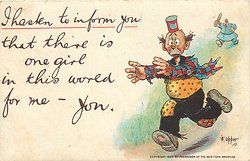 I hasten to inform you
that there is
one girl
in this world
for me - you.
F. Opper
COPYRIGHT 1906 BY PERMISSION OF THE NEW YORK AMERICAN